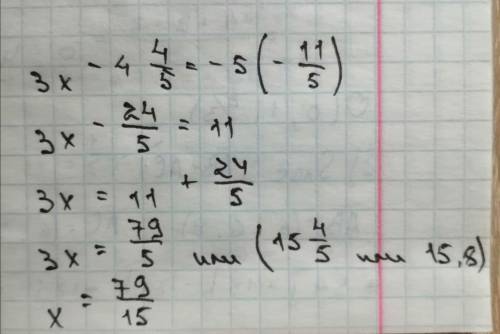 3x - 4 4/5 = - 5 (- 11/5)
3x - 24/5 = 11
3x = 11 + 24/5
3x = 79/5 или (15 4/5 или 15,8)
x = 79/15